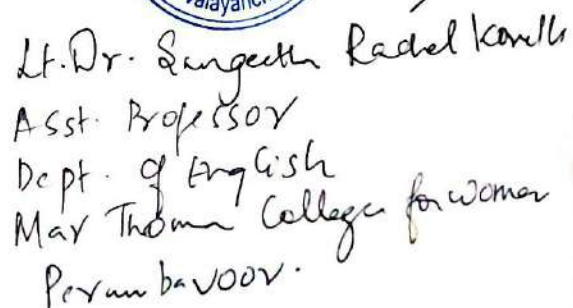 Lt. Dr. Sangeetha Rachel
Asst. Professor
Dept. of English
Mar Thoma College for women
Perumbavoor.